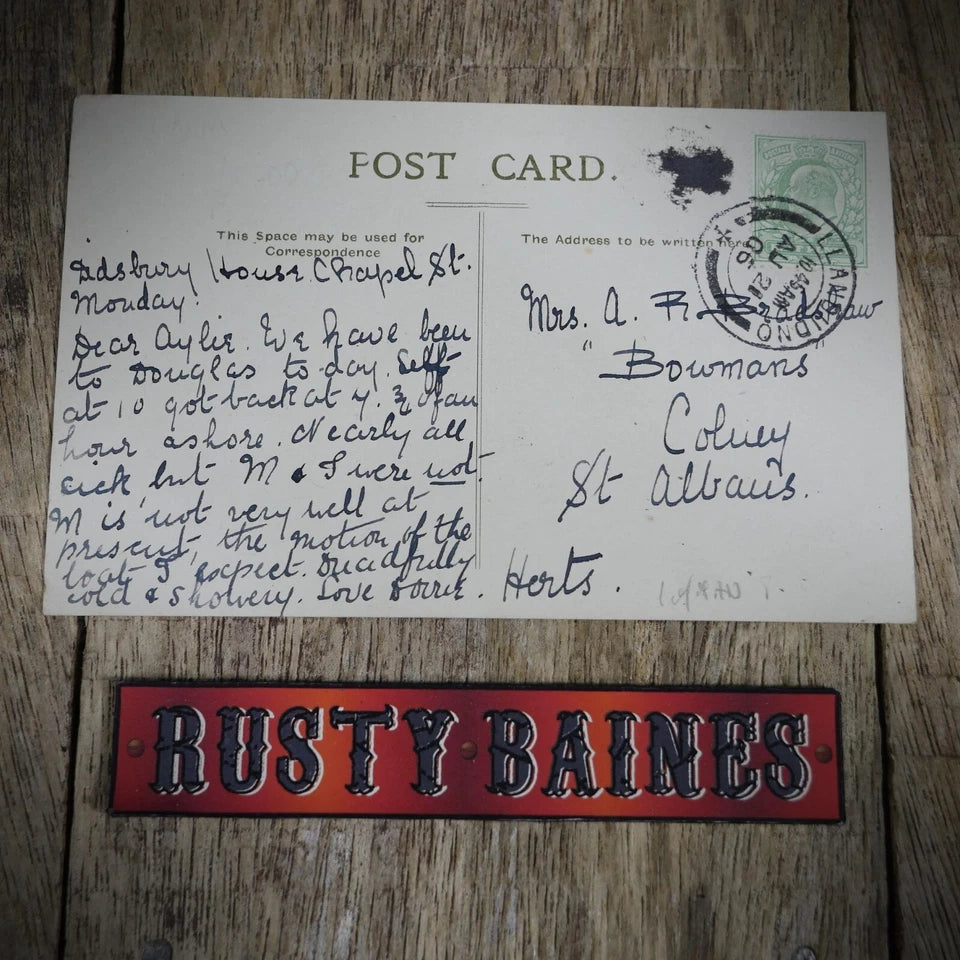 POST CARD.
This Space may be used for
Correspondence
The Address to be written here
LLANDUDNO
10.45AM
AU 21
06
Didsbury House Chapel St.
Monday.
Dear Aylie. We have been
to Douglas to day. Left
at 10 got back at 7. ¾ of an
hour ashore. Nearly all
sick, but M & I were not.
M is not very well at
present, the motion of the
boat I expect. Dreadfully
cold & showery. Love Dorrie.
Mrs. A. R. Bradshaw
" Bowmans "
Colney
St Albans.
Herts.
RUSTY BAINES